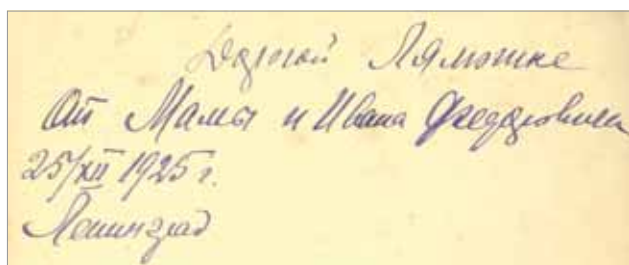 Дорогой Лямошке
От Мамы и Ивана Федоровича
25/XII 1925 г.
Ленинград